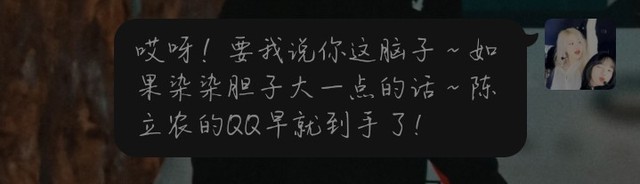 哎呀！要我说你这脑子～如
果染染胆子大一点的话～陈
立农的QQ早就到手了！